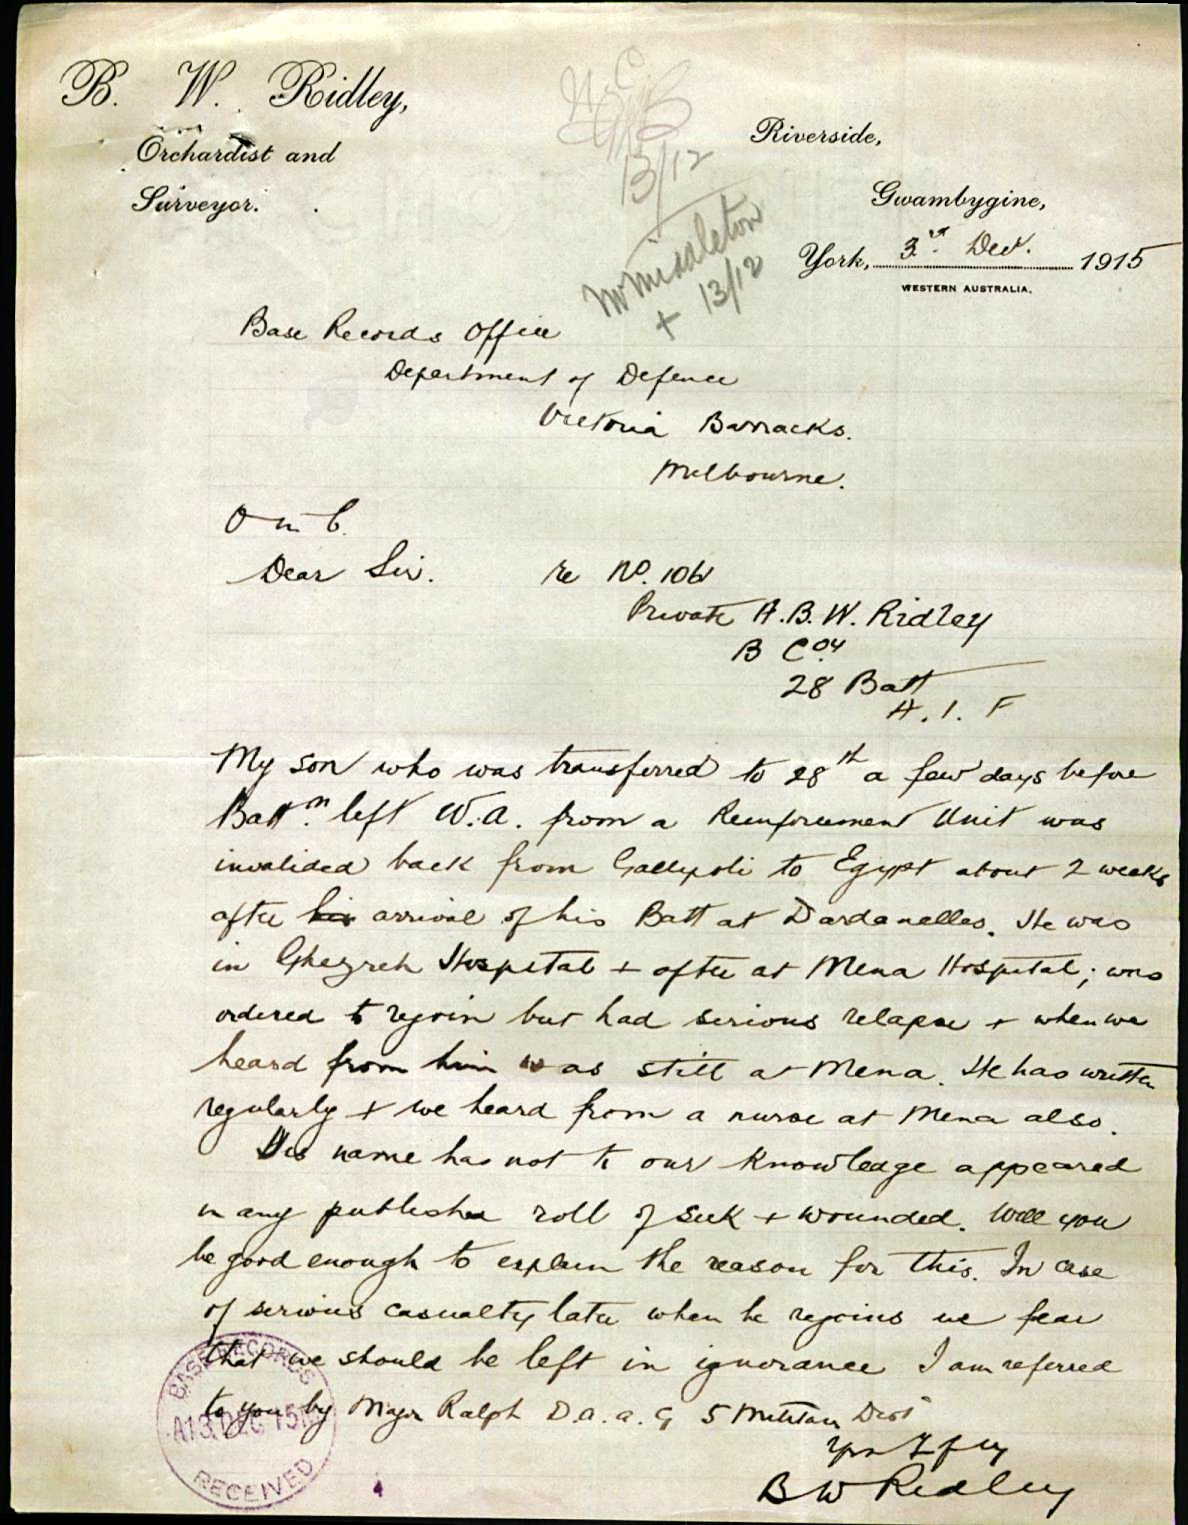 B. W. Ridley,
Orchardist and
Surveyor.
13/12
Mr Middleton
+ 13/12
Riverside,
Gwambygine,
York, 3rd Dec. 1915
WESTERN AUSTRALIA.
Base Records Office
Department of Defence
Victoria Barracks.
Melbourne.
O in C.
Dear Sir. re No. 106
Private A.B.W. Ridley
B Coy
28 Batt
A. I. F
My son who was transferred to 28th a few days before
Battn. left W.A. from a Reinforcement Unit was
invalided back from Gallipoli to Egypt about 2 weeks
after his arrival of his Batt at Dardanelles. He was
in Ghezireh Hospital + after at Mena Hospital; was
ordered to rejoin but had serious relapse + when we
heard from him was still at Mena. He has written
regularly + we heard from a nurse at Mena also.
His name has not to our knowledge appeared
in any published roll of sick + wounded. Will you
be good enough to explain the reason for this. In case
of serious casualty later when he rejoins we fear
that we should be left in ignorance I am referred
to you by Major Ralph D.A.A.G 5 Military Dist
Yrs Ffly
B W Ridley
BASE RECORDS
A13 DEC 15
RECEIVED